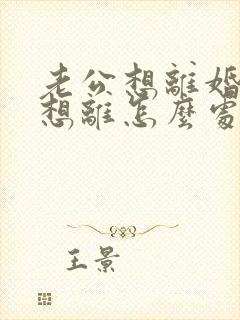 老公想離婚
想離怎麼處
王景